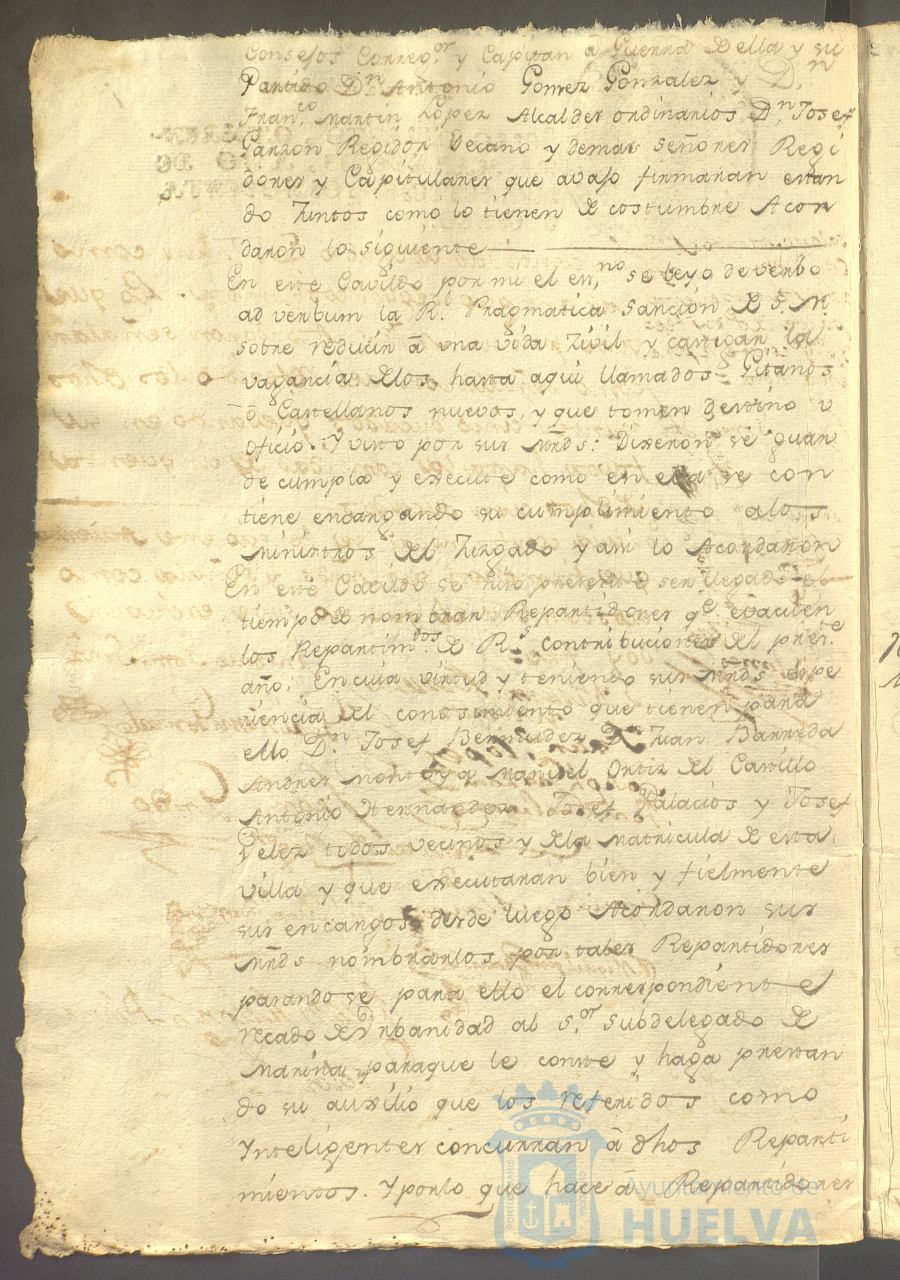 Consejos Correg.or y Capitan â Guerra della y su
Partido D.n Antonio Gomez Gonzalez y D.n
Fran.co Martin Lopez Alcaldes ordinarios D.n Josef
Garzon Regidor Decano y demas señores Regi
dores y Capitulares que avajo firmaran estan
do Juntos como lo tienen de costumbre Acor
daron lo siguiente
En este Cavildo por mi el es.no se leyo de verbo
ad verbum la R.l Pragmatica Sancion de S. M.
sobre reducir â una vida Zivil y castigar la
vagancia delos hasta aqui llamados Gitanos
ô Castellanos nuevos, y que tomen destino u
oficio. Y visto por sus mrds. Dixeron se guar
de cumpla y execute como en ella se con
tiene encargando su cumplimiento alos
Ministros del Juzgado y asi lo Acordaron
En este Cavildo se hizo presente ser llegado el
tiempo de nombrar Repartidores q.e evacuen
los Repartim.tos de R.s contribuciones del pres.te
año: En cuia virtud y teniendo sus mrds espe
riencia del conosimiento que tienen para
ello D.n Josef Bermudez D.n Juan Barreda
Andres Montoya Manuel Ortiz del Castillo
Antonio Hernandez Josef Palacios y Josef
Velez todos vecinos y dela Matricula de esta
villa y que executarán bien y fielmente
sus encargos desde luego Acordaron sus
mrds nombrarlos por tales Repartidores
pasandose para ello el correspondiente
recado de Urbanidad al S.or Subdelegado de
Marina paraque le conste y haga prestan
do su auxilio que los referidos como
Ynteligentes concurran â dhos Reparti
mientos. Y porlo que hace â Repartidores
Ayuntamiento de
HUELVA